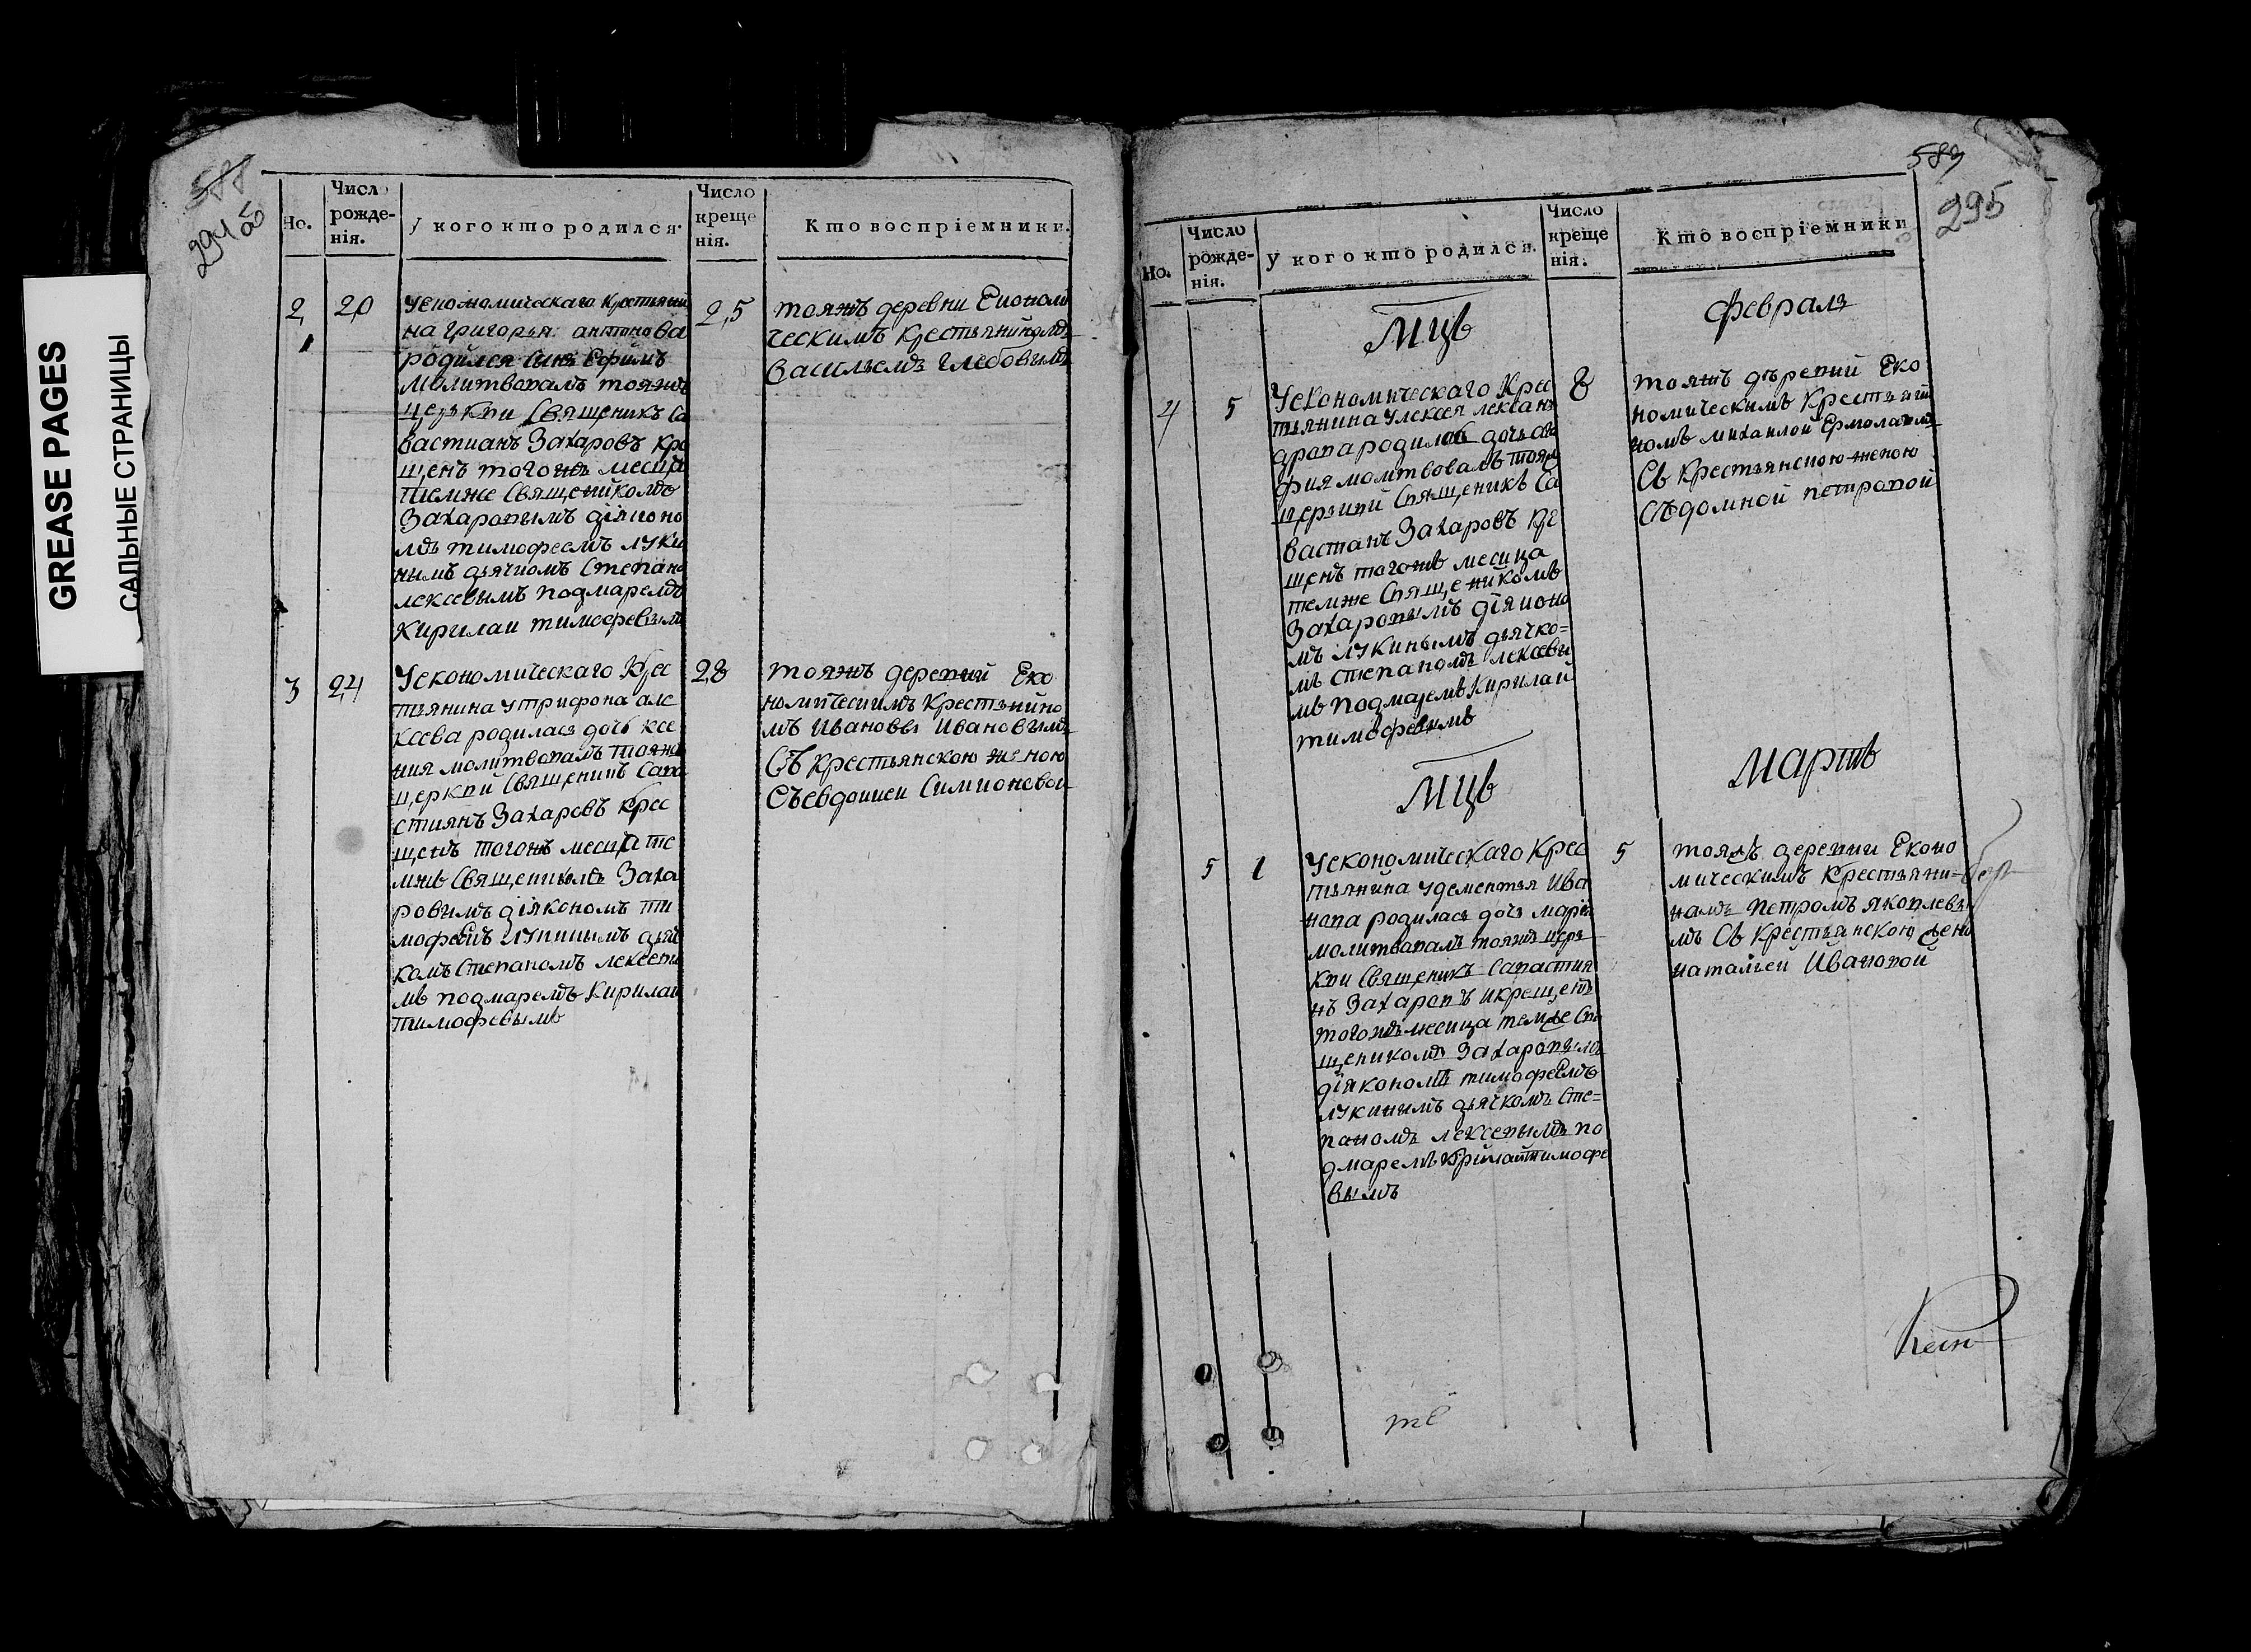 GREASE PAGES
САЛЬНЫЕ СТРАНИЦЫ
588
294 об
Но.
Число рожденія.
У кого кто родился.
Число крещенія.
Кто воспріемники.
2
20
Уекономическаго Крестьяни
на григорья антонова
родился сынъ Ефимъ
молитвовалъ тояжъ
церкви Священикъ Са
вастианъ Захаровъ кре
щенъ тогожъ месица
темже Священикомъ
Захаровымъ діяконо
мъ тимофеемъ луки
нымъ дьячкомъ Степано
лексевымъ подмаремъ
Кирилаи тимофевымъ
25
тояжъ деревни Економи
ческимъ Крестьяниномъ
Васильемъ Глебовымъ
3
24
Уекономическаго Крес
тьянина утрифона але
ксева родилась дочь ксе
ния молитвовалъ тояжъ
церкви Священикъ Сава
стиянъ Захаровъ крес
щенъ тогожъ месица те
мже Священикомъ Заха
ровымъ діякономъ ти
мофеемъ лукинымъ дьяч
комъ Степаномъ лексевы
мъ подмаремъ Кирилаи
тимофевымъ
28
тояжъ деревни Еко
номическимъ Крестьянино
мъ Ивановы Ивановымъ
Съ крестьянскою женою
Съевдокиеи Симионовои
589
295
Но.
Число рожденія.
У кого кто родился.
Число крещенія.
Кто воспріемники
Мцъ
Февраля
4
5
Уекономическаго Крес
тьянина улексея лексан
драва родилась дочь ага
фия молитвовалъ тояж
церкви Священикъ Са
вастанъ Захаровъ кре
щенъ тогожъ месица
темже Священикомъ
Захаровымъ діяконо
мъ лукинымъ дьячко=
мъ Степаномъ лексевы
мъ подмаремъ Кирилаи
тимофевымъ
8
тояжъ деревни Еко
номическимъ Крестьяни
номъ михаилои Ермолаевымъ
Съ Крестьянскою женою
Съдомной петровой
Мцъ
Мартъ
5
1
Уекономическаго Крес
тьянина удементья Ива
нова родилась дочь марія
молитвовалъ тояжъ цер
кви Священикъ Савастия
нъ Захаровъ икрещенъ
тогожъ месица темже Свя
щеникомъ Захаровымъ
діякономъ тимофеемъ
лукинымъ дьячкомъ Сте=
паномъ лексевымъ по
дмаремъ Кирилаи тимофе
вымъ
5
тояжъ деревни Еконо
мическимъ Крестьяни=
номъ Петромъ яковлевы
мъ Съ Крестьянскою жено
натальеи Ивановой